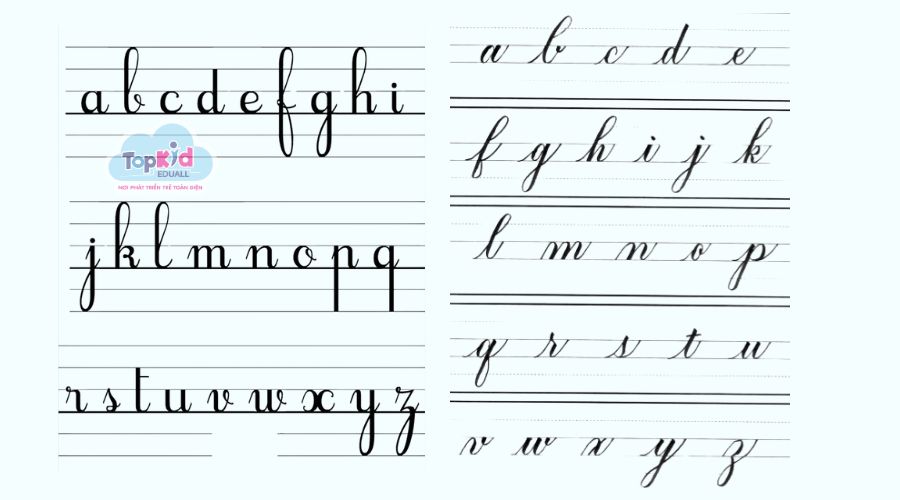 a b c d e f g h i
TopKid
EDUALL
NƠI PHÁT TRIỂN TRẺ TOÀN DIỆN
j k l m n o p q
r s t u v w x y z
a b c d e
f g h i j k
l m n o p
q r s t u
v w x y z